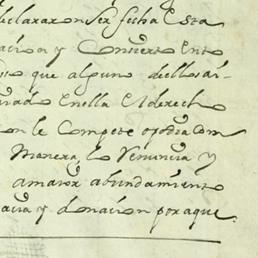 declararon ser fecha esta
acion y Concierto Ento
que alguno dellos a
Enella El derech
le Compete o podia Com
Manera, lo Renuncia y
a mayor abundamiento
acia y donacion por aque